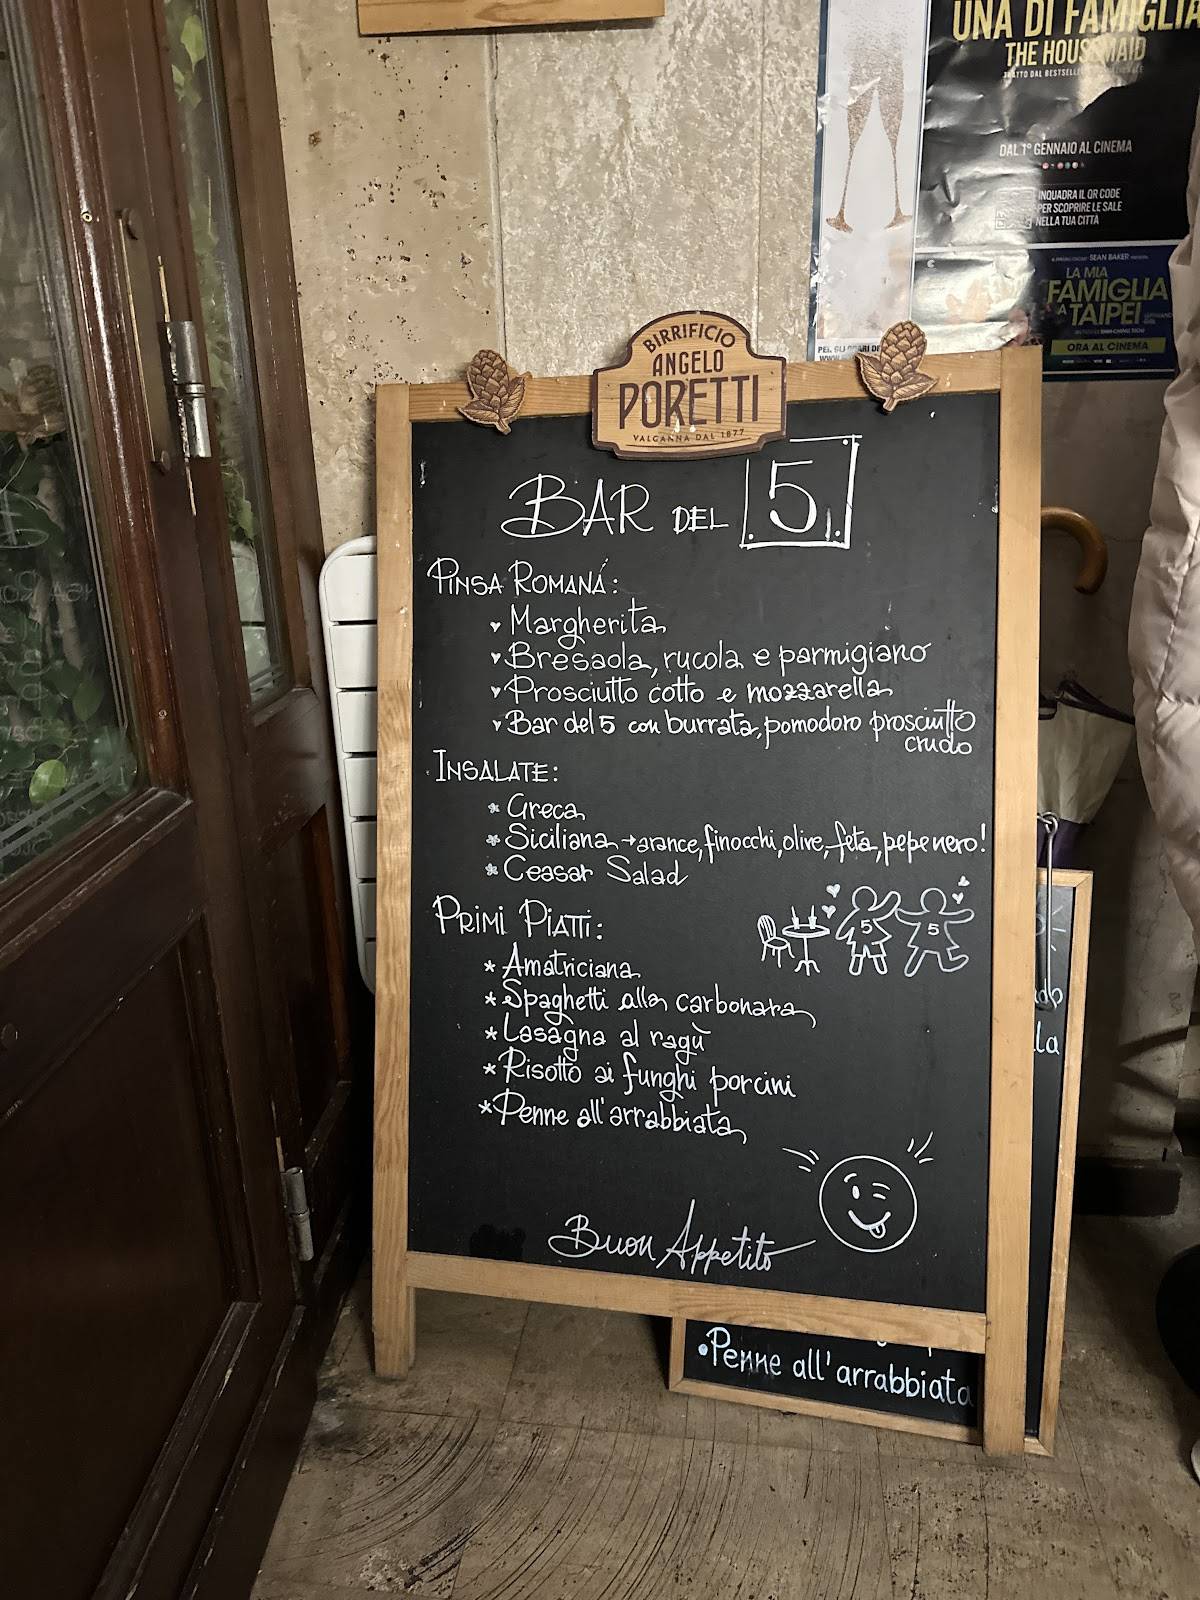 UNA DI FAMIGLIA
THE HOUSEMAID
TRATTO DAL BESTSELLER
DAL 1° GENNAIO AL CINEMA
INQUADRA IL QR CODE
PER SCOPRIRE LE SALE
NELLA TUA CITTÀ
SEAN BAKER
LA MIA
FAMIGLIA
A TAIPEI
ORA AL CINEMA
BIRRIFICIO
ANGELO
PORETTI
VALGANNA DAL 1877
BAR DEL 5
PINSA ROMANÁ:
Margherita
Bresaola, rucola e parmigiano
Prosciutto cotto e mozzarella
Bar del 5 con burrata, pomodoro prosciutto
crudo
INSALATE:
* Greca
* Siciliana → arance, finocchi, olive, feta, pepe nero!
* Ceasar Salad
PRIMI PIATTI:
5 5
* Amatriciana
* Spaghetti alla carbonara
* Lasagna al ragù
* Risotto ai funghi porcini
* Penne all'arrabbiata
Buon Appetito
la
• Penne all'arrabbiata